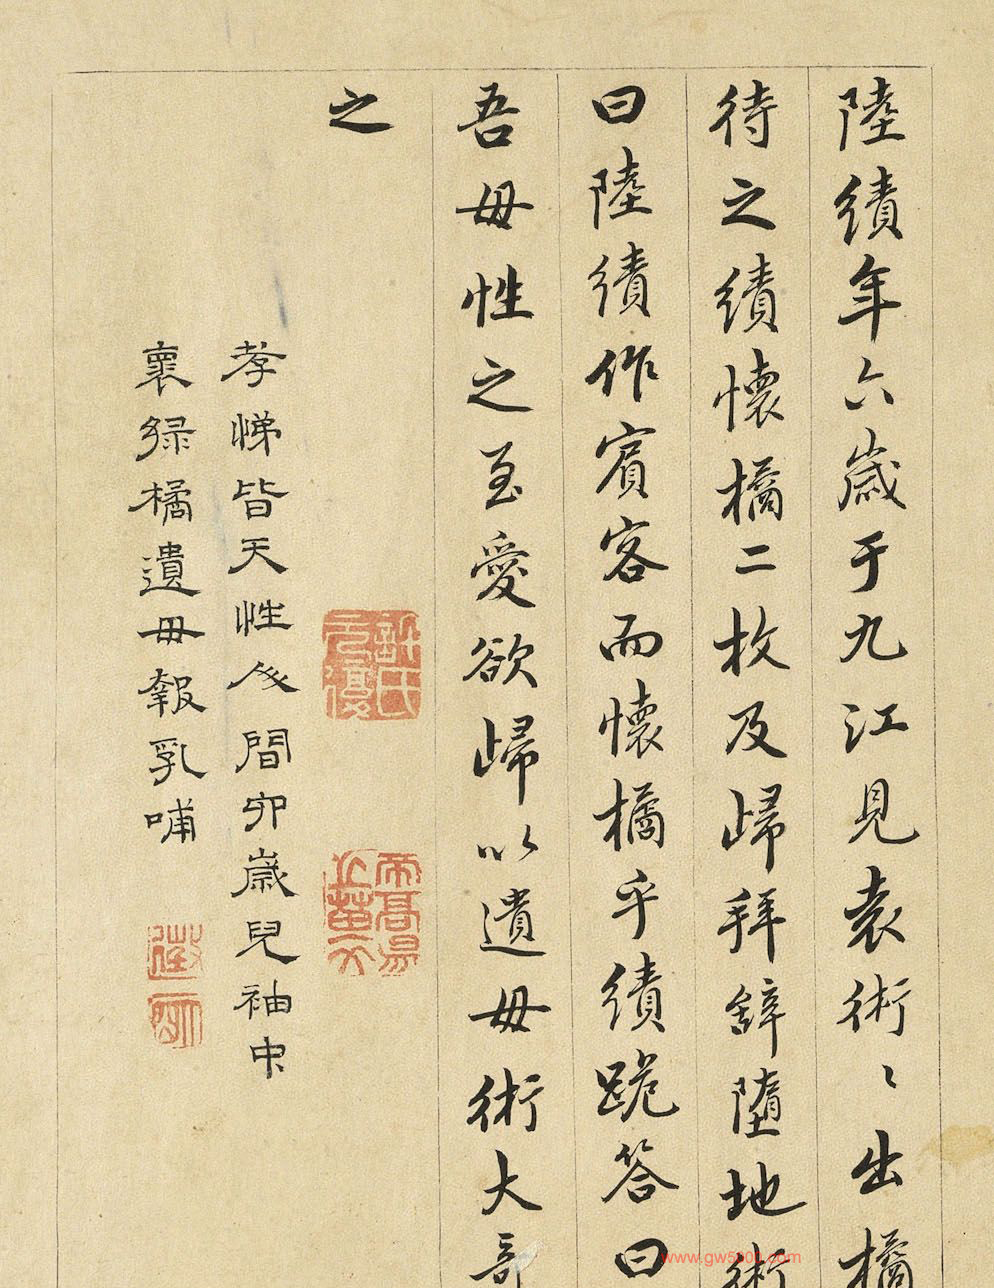 陸績年六歲于九江見袁術〻出橘
待之績懷橘二枚及歸拜辭墮地術
曰陸績作賓客而懷橘乎績跪答曰
吾母性之至愛欲歸以遺母術大奇
之
許氏元復
帝高昜之苗裔
孝悌皆天性人間六歲兒袖中
褱綠橘遺毋報乳哺
徵明